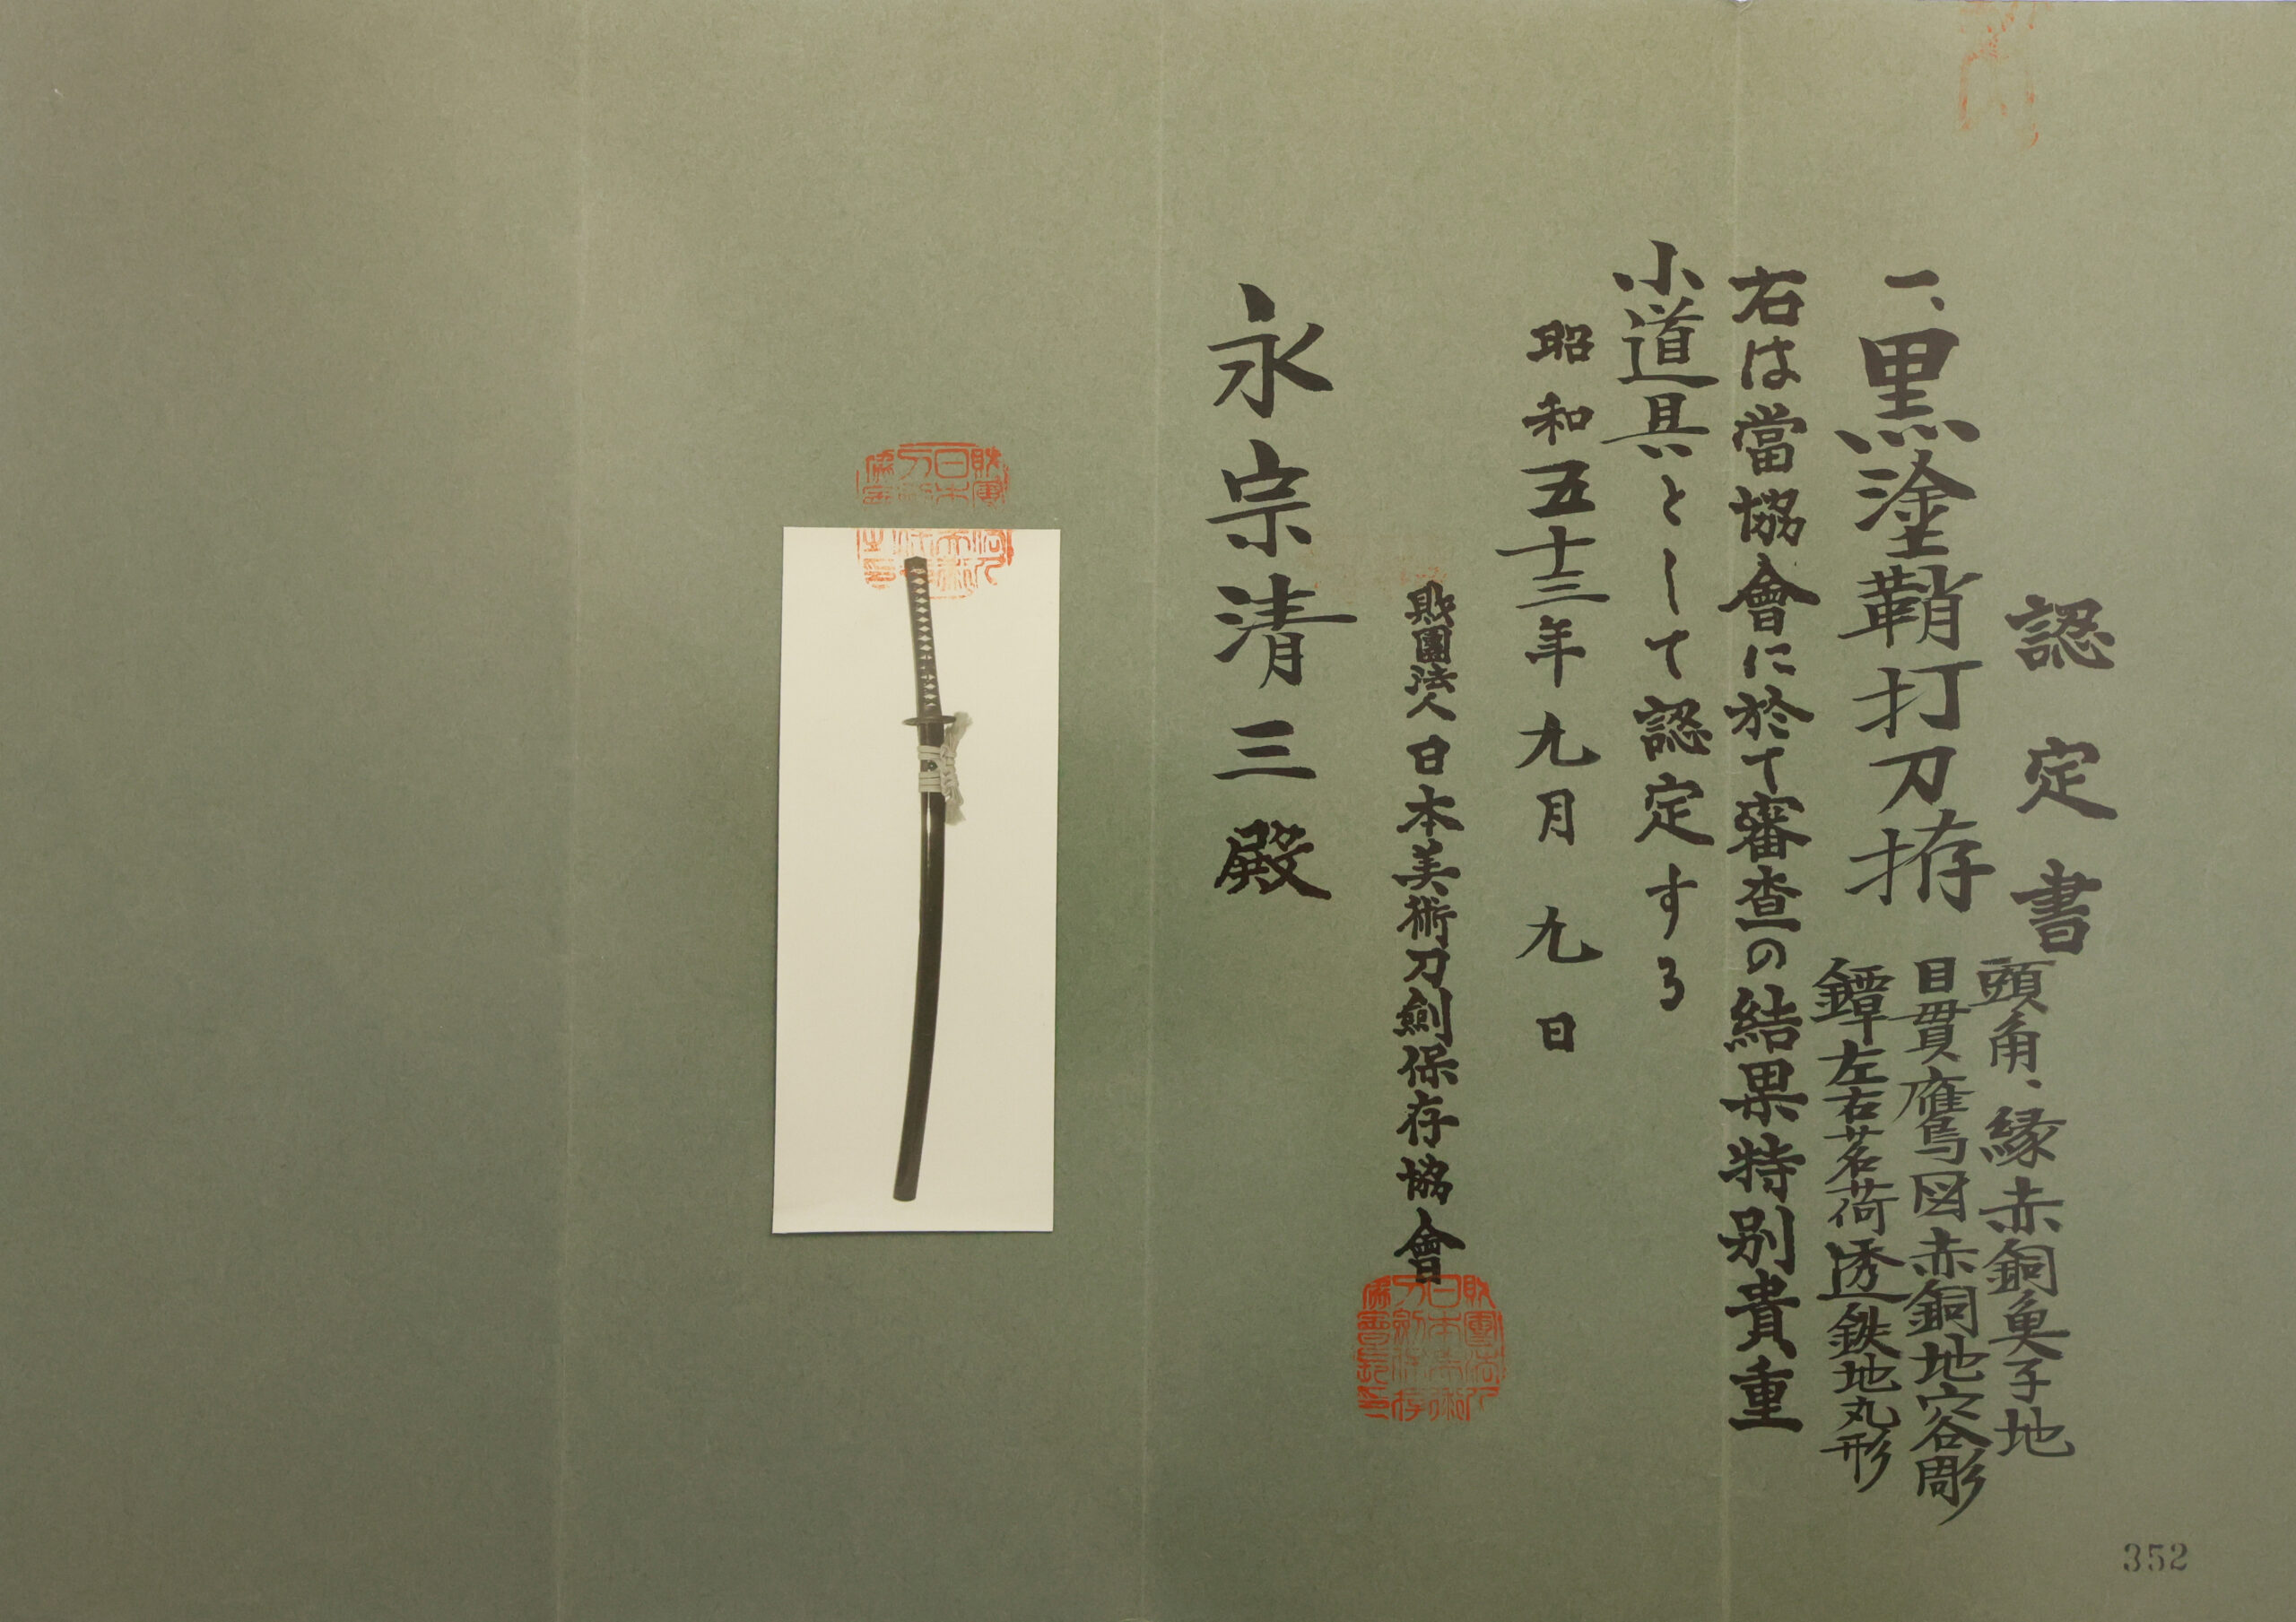 認定書
一、黒塗鞘打刀拵
頭角、縁赤銅魚子地
目貫鷹図赤銅地容彫
鐔左右茗荷透鉄地丸形
右は當協會に於て審査の結果特別貴重
小道具として認定する
昭和五十三年九月九日
財團法人日本美術刀劍保存協會
永宗清三殿
352